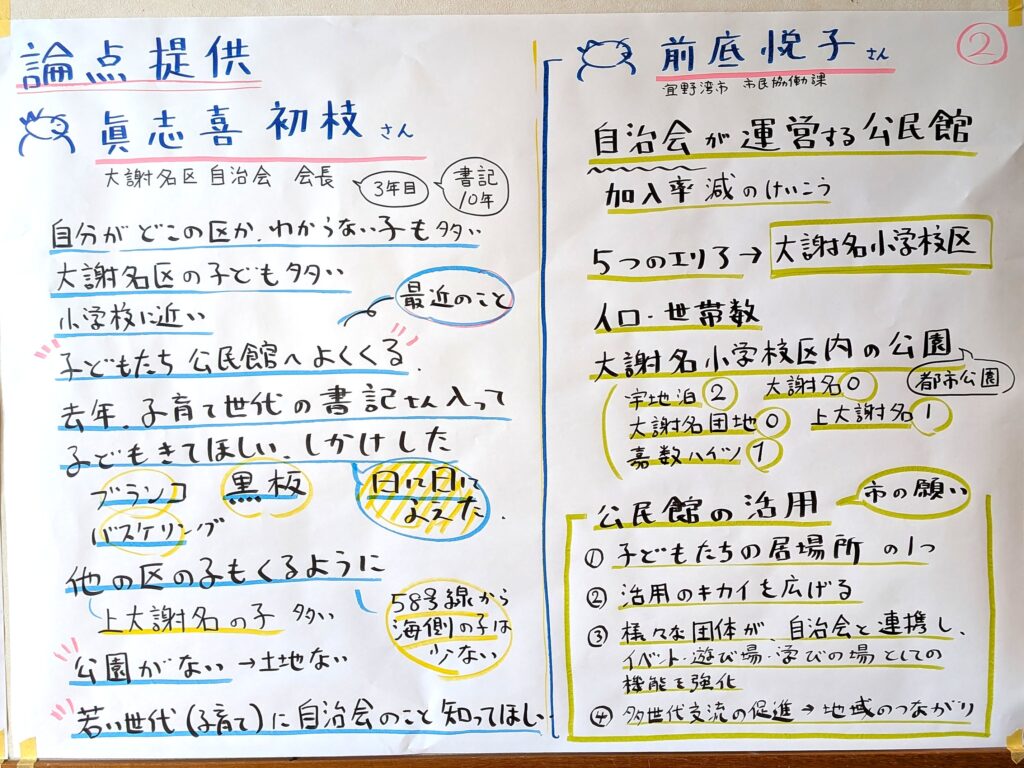 論点提供
眞志喜 初枝 さん
大謝名区 自治会 会長
3年目
書記
10年
自分が どこの区か、わからない子も多い
大謝名区の子ども多い
小学校に近い
最近のこと
子どもたち 公民館へ よくくる。
去年、子育て世代の書記さん入って
子どもきてほしい、しかけした
ブランコ 黒板
バスケリング
日に日に
ふえた。
他の区の子もくるように
上大謝名の子 多い
58号線から
海側の子は
少ない
公園がない→土地ない
若い世代(子育て)に自治会のこと知ってほしい
②
前底 悦子 さん
宜野湾市 市民協働課
自治会が運営する公民館
加入率減のけいこう
5つのエリア→大謝名小学校区
人口・世帯数
大謝名小学校区内の公園
都市公園
宇地泊2 大謝名0
大謝名団地0 上大謝名1
嘉数ハイツ1
公民館の活用
市の願い
① 子どもたちの居場所 の1つ
② 活用のキカイを広げる
③ 様々な団体が、自治会と連携し、
イベント・遊び場・学びの場としての
機能を強化
④ 多世代交流の促進→地域のつながり